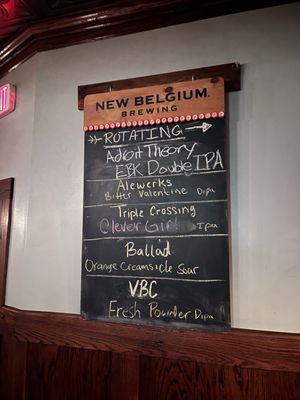 NEW BELGIUM
BREWING
ROTATING
Adroit Theory
EBK Double IPA
Alewerks
Bitter Valentine Dipa
Triple Crossing
Clever Girl Ipa
Ballad
Orange Creamsicle Sour
VBC
Fresh Powder Dipa